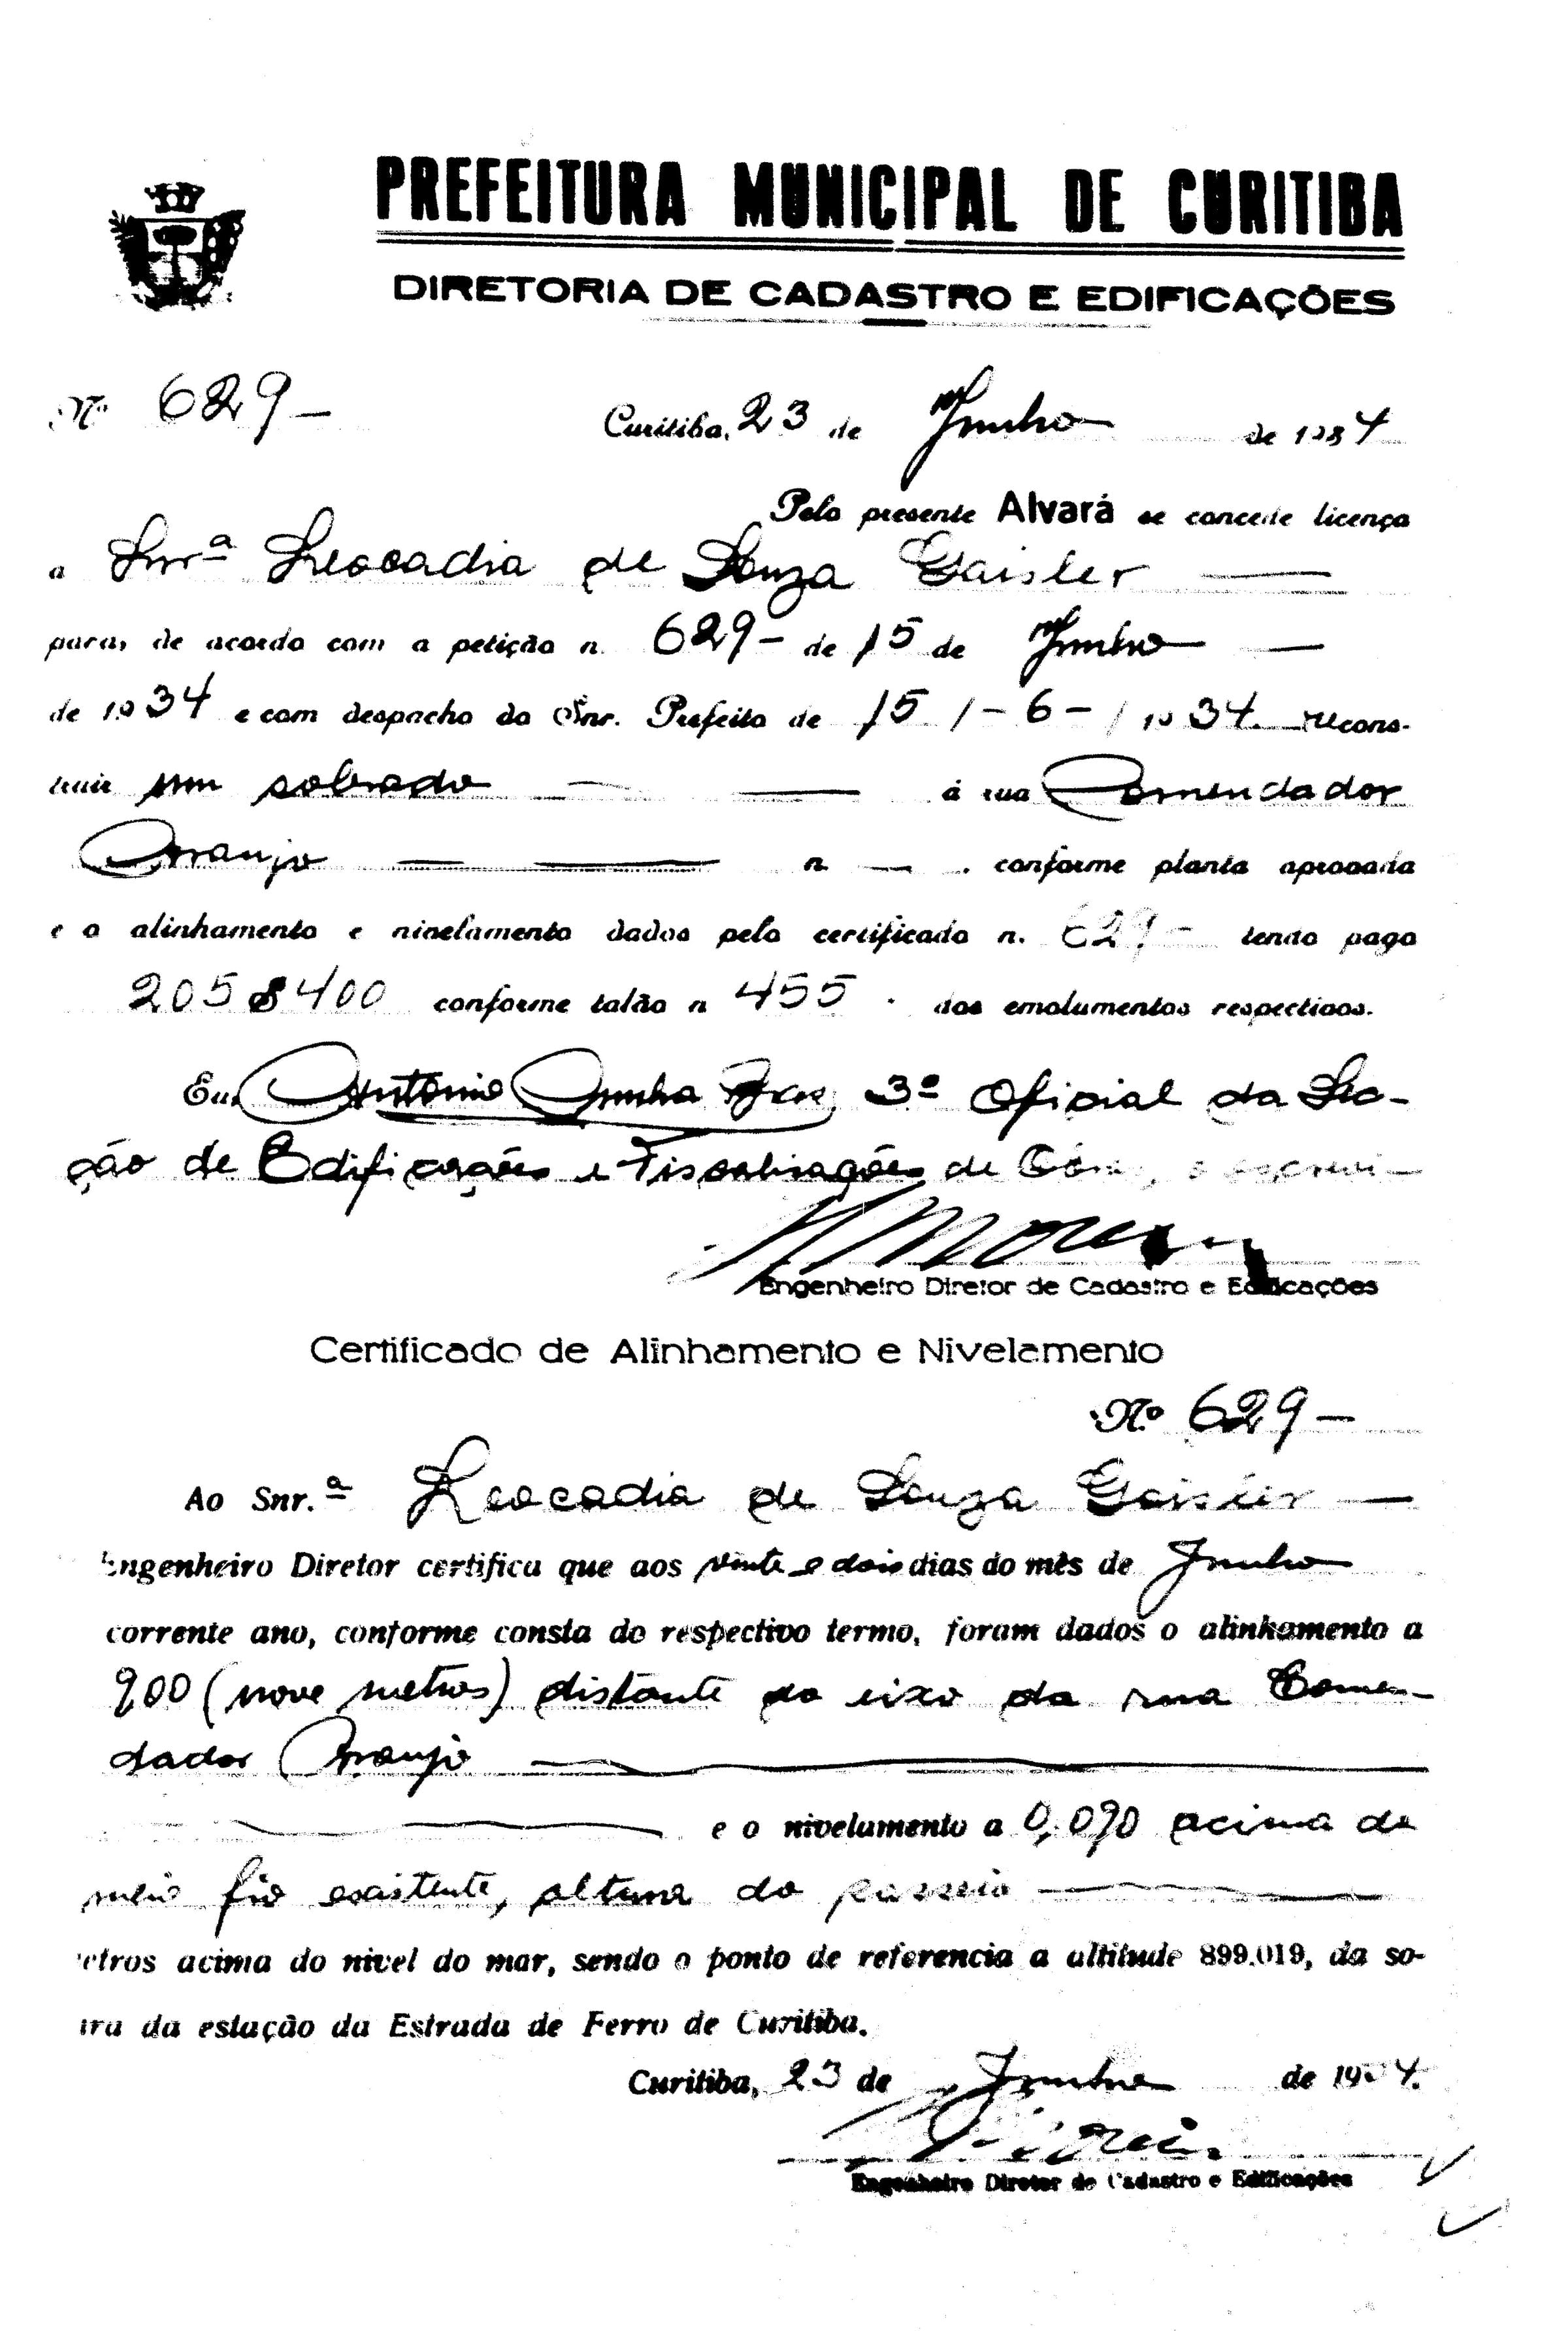 PREFEITURA MUNICIPAL DE CURITIBA
DIRETORIA DE CADASTRO E EDIFICAÇÕES
Nº 629-
Curitiba, 23 de Junho de 1934
Pelo presente Alvará se concede licença
a Snrª Leocadia de Souza Gaisler
para, de acordo com a petição n. 629- de 15 de Junho
de 1934 e com despacho do Snr. Prefeito de 15 / - 6 - / 1934 recons-
truir um sobrado á rua Comendador
Araujo n. — . conforme planta aprovada
e o alinhamento e nivelamento dados pelo certificado n. 629- tendo pago
205$400 conforme talão n 455 . dos emolumentos respectivos.
Eu, Antonio Cunha 3º Oficial da Sec-
ção de Edificações e Fiscalisações de o escrevi-
Engenheiro Diretor de Cadastro e Edificações
Certificado de Alinhamento e Nivelamento
Nº 629-
Ao Snr.ª Leocadia de Souza Gaisler
Engenheiro Diretor certifica que aos vinte e dois dias do mês de Junho
corrente ano, conforme consta do respectivo termo, foram dados o alinhamento a
900 (nove metros) distante do eixo da rua Comen-
dador Araujo
e o nivelamento a 0,090 acima do
meio fio existente, altura do passeio
etros acima do nivel do mar, sendo o ponto de referencia a altitude 899.019, da so-
ira da estação da Estrada de Ferro de Curitiba.
Curitiba, 23 de Junho de 1934.
Engenheiro Diretor de Cadastro e Edificações